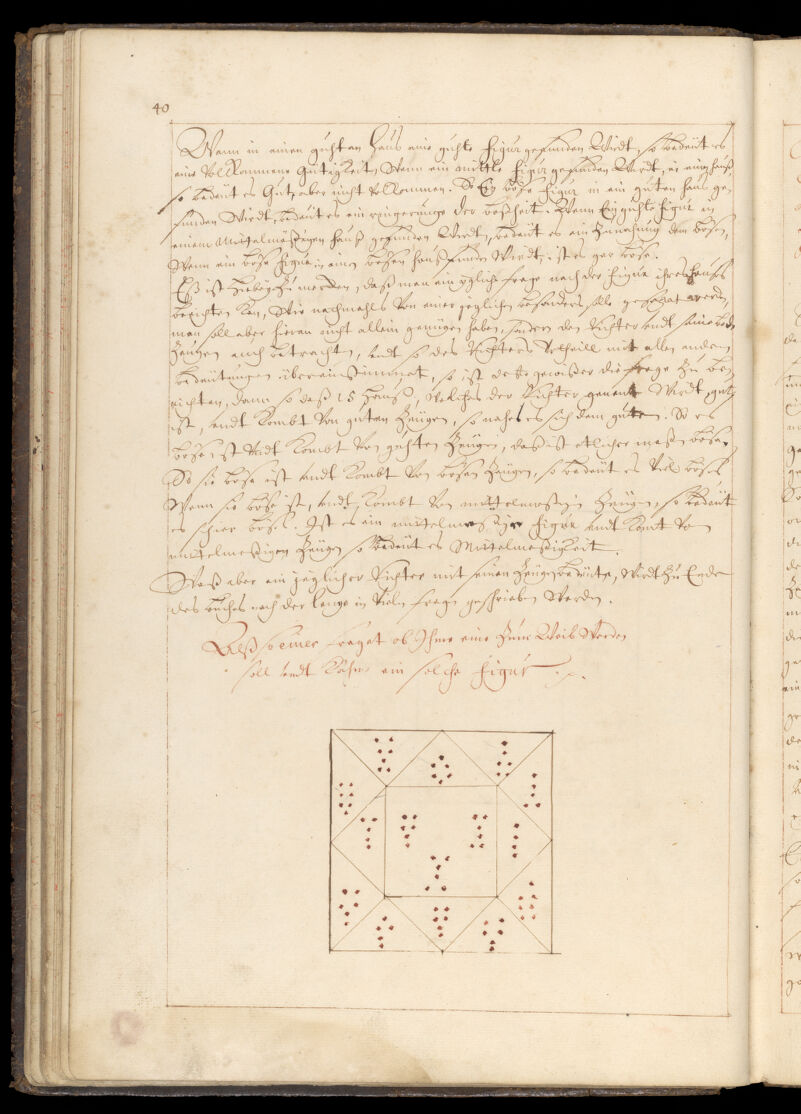 40
Wann in einen guhten Hauß eine guhte figur gefunden Wirdt, so bedeüt es
eine Vollkommene Gutigkeit, Wann ein mittle figur gefunden Wirdt, in
so bedeüt es Gut, aber nicht Vollkommen. So Ein böse figur in ein guten Hauß ge-
funden Wirdt, bedeut es ein ringerunge der boßheit. Wann Ein guhte figur in
einem Mittelmäßigen Hauß gefunden Wirdt, bedeüt es ein dem bösen,
Wann ein böse figur in einen bösen Hauß funden Wirdt, ist es gar böse.
Eß ist hiebey zu mercken, daß man ein ygliche frage nach der figur ihres Haußes
berichten kan, Wie nachmahls Von einer jeglichen besonders solle gesaget werden,
man soll aber hieran nicht allein genügen haben, sondern den Richter undt seine beide
Zeugen auch betrachten, undt so des Richters Urtheill mit allen andern
bedeütungen übereinstimmet, so ist desto gewisser die frage zu be-
richten, dann so daß 15 Hauß, Welches der Richter genant Wirdt, gut
ist, undt kombt Von guten Zeugen, so nahet es sich dem guten. So es
böse ist Undt kombt Von guhten Zeugen, daß ist etlicher maßen böse,
So sie böse ist undt kombt Von bösen Zeugen, so bedeut es Viel böses
Wann sie böse ist, undt kombt Von mittelmeßigen Zeugen, so bedeüt
es schier böse. Ist es ein mittelmeßiger figur undt komt Von
mittelmeßigen Zeugen so bedeüt es Mittelmeßigkeit.
Waß aber ein jeglicher Richter mit seinen Zeugen bedeute, Wirdt zu Ende
des buches nach der lenge in Vielen fragen geschrieben Werden.
Alß so einer fraget ob Ihme eine zum Weib Werden
soll undt kähme ein solche figur